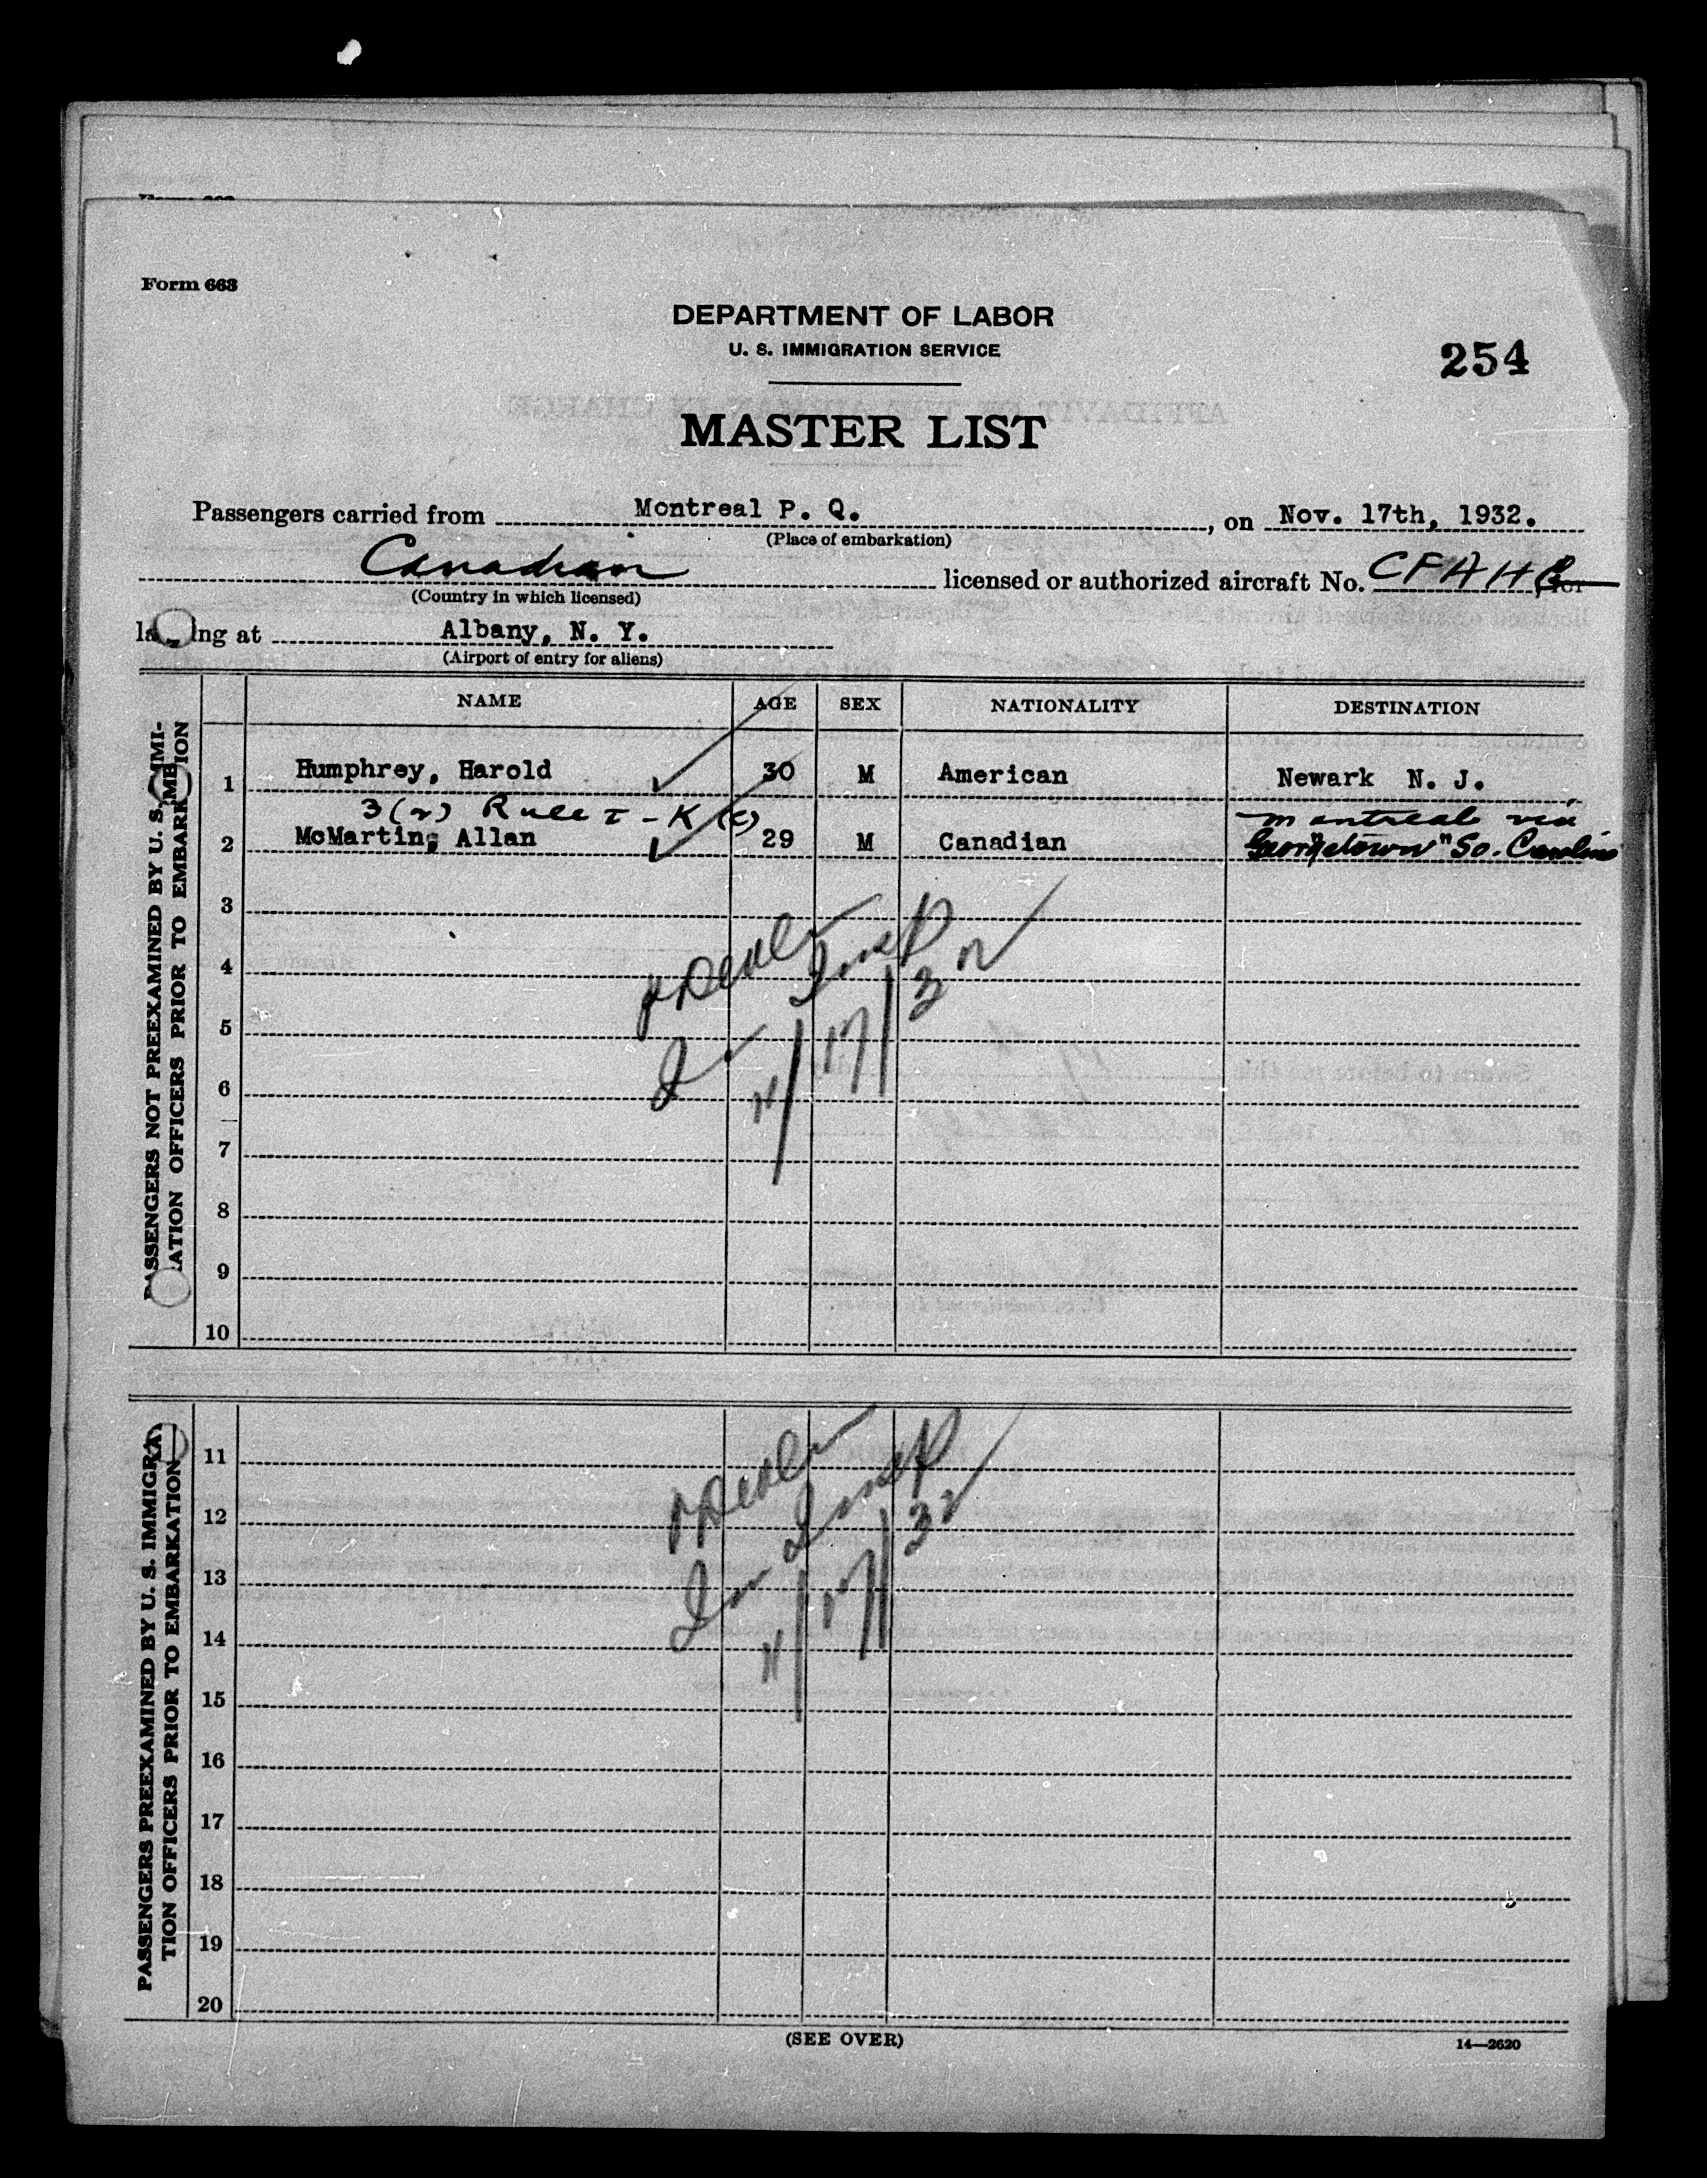 Form 663
DEPARTMENT OF LABOR
U. S. IMMIGRATION SERVICE
254
MASTER LIST
Passengers carried from Montreal P. Q. , on Nov. 17th, 1932.
(Place of embarkation)
Canadian licensed or authorized aircraft No. CFAHB, for
(Country in which licensed)
landing at Albany, N. Y.
(Airport of entry for aliens)
NAME AGE SEX NATIONALITY DESTINATION
PASSENGERS NOT PREEXAMINED BY U. S. IMMI-
GRATION OFFICERS PRIOR TO EMBARKATION
1 Humphrey, Harold 30 M American Newark N. J.
3(2) Rule I - K (c) Montreal via
2 McMartin, Allan 29 M Canadian "Georgetown" So. Carolina
3
4
Insp
5
6
11/17/32
7
8
9
10
PASSENGERS PREEXAMINED BY U. S. IMMIGRA-
TION OFFICERS PRIOR TO EMBARKATION
11
12
Insp
13
14
11/17/32
15
16
17
18
19
20
(SEE OVER)
14—2620